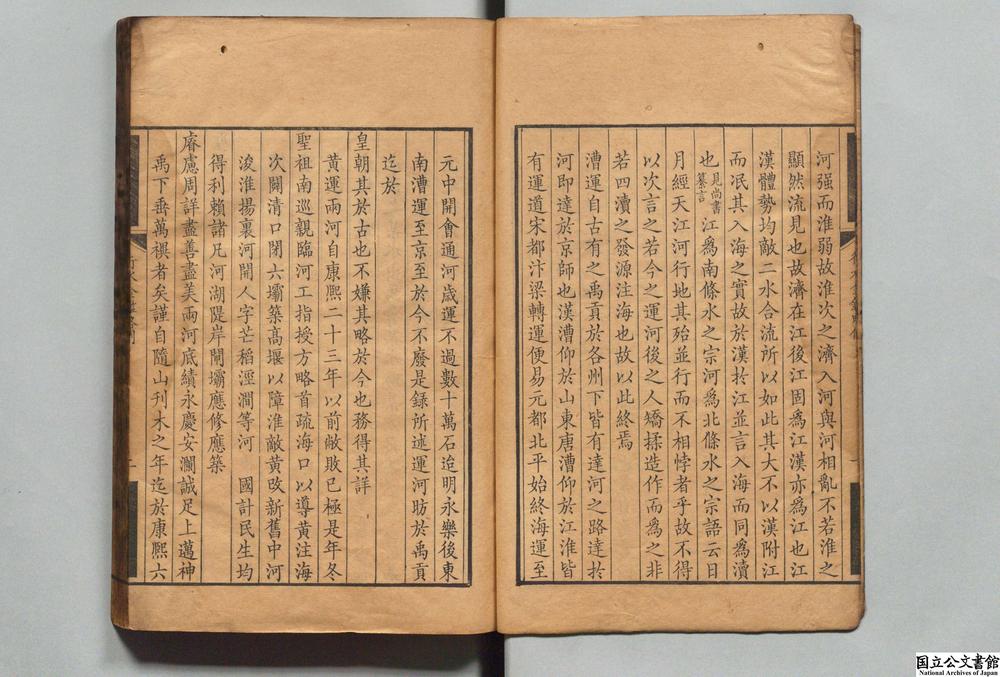 河强而淮弱故淮次之濟入河與河相亂不若淮之
顯然流見也故濟在江後江固爲江漢亦爲江也江
漢體勢均敵二水合流所以如此其大不以漢附江
而泯其入海之實故於漢扵江並言入海而同爲瀆
也見尚書纂言江爲南條水之宗河爲北條水之宗語云日
月經天江河行地其殆並行而不相悖者乎故不得
以次言之若今之運河後之人矯揉造作而爲之非
若四瀆之發源注海也故以此終焉
漕運自古有之禹貢於各州下皆有達河之路達扵
河即達於京師也漢漕仰於山東唐漕仰於江淮皆
有運道宋都汴梁轉運便易元都北平始終海運至
元中開會通河歲運不過數十萬石迨明永樂後東
南漕運至京至於今不廢是録所述運河昉於禹貢
迄於
皇朝其於古也不嫌其略於今也務得其詳
黄運兩河自康熙二十三年以前敝敗已極是年冬
聖祖南巡親臨河工指授方略首疏海口以導黄注海
次闢清口閉六壩築高堰以障淮敵黄改新舊中河
浚淮揚裏河開人字芒稻涇澗等河 國計民生均
得利賴諸凡河湖隄岸閘壩應修應築
睿慮周詳盡善盡美兩河底績永慶安瀾誠足上邁神
禹下垂萬禩者矣謹自隨山刊木之年迄於康熙六
国立公文書館
National Archives of Japan